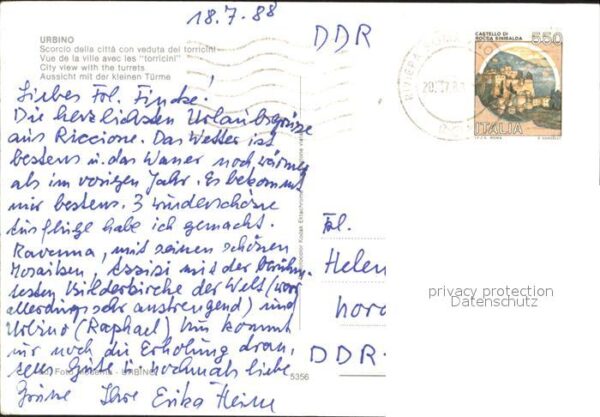 18.7.88
DDR
URBINO
Scorcio della città con veduta dei torricini
Vue de la ville avec les "torricini"
City view with the turrets
Aussicht mit der kleinen Türme
550
CASTELLO DI
ROCCA SINIBALDA
ITALIA
Liebes Frl. Fincke!
Die herzlichsten Urlaubsgrüsse
aus Riccione. Das Wetter ist
bestens u. das Wasser noch wärmer
als im vorigen Jahr. Es bekommt
mir bestens. 3 wunderschöne
Ausflüge habe ich gemacht.
Ravenna, mit seinen schönen
Mosaiken, Assisi mit der berühm-
testen Bilderkirche der Welt (war
allerdings sehr anstrengend) und
Urbino (Raphael) Nun kommt
nur noch die Erholung dran,
Gute u. nochmals liebe
Grüsse Ihre Erika Heim
Frl.
Helen
nord
DDR-
URBINO
5356
privacy protection
Datenschutz